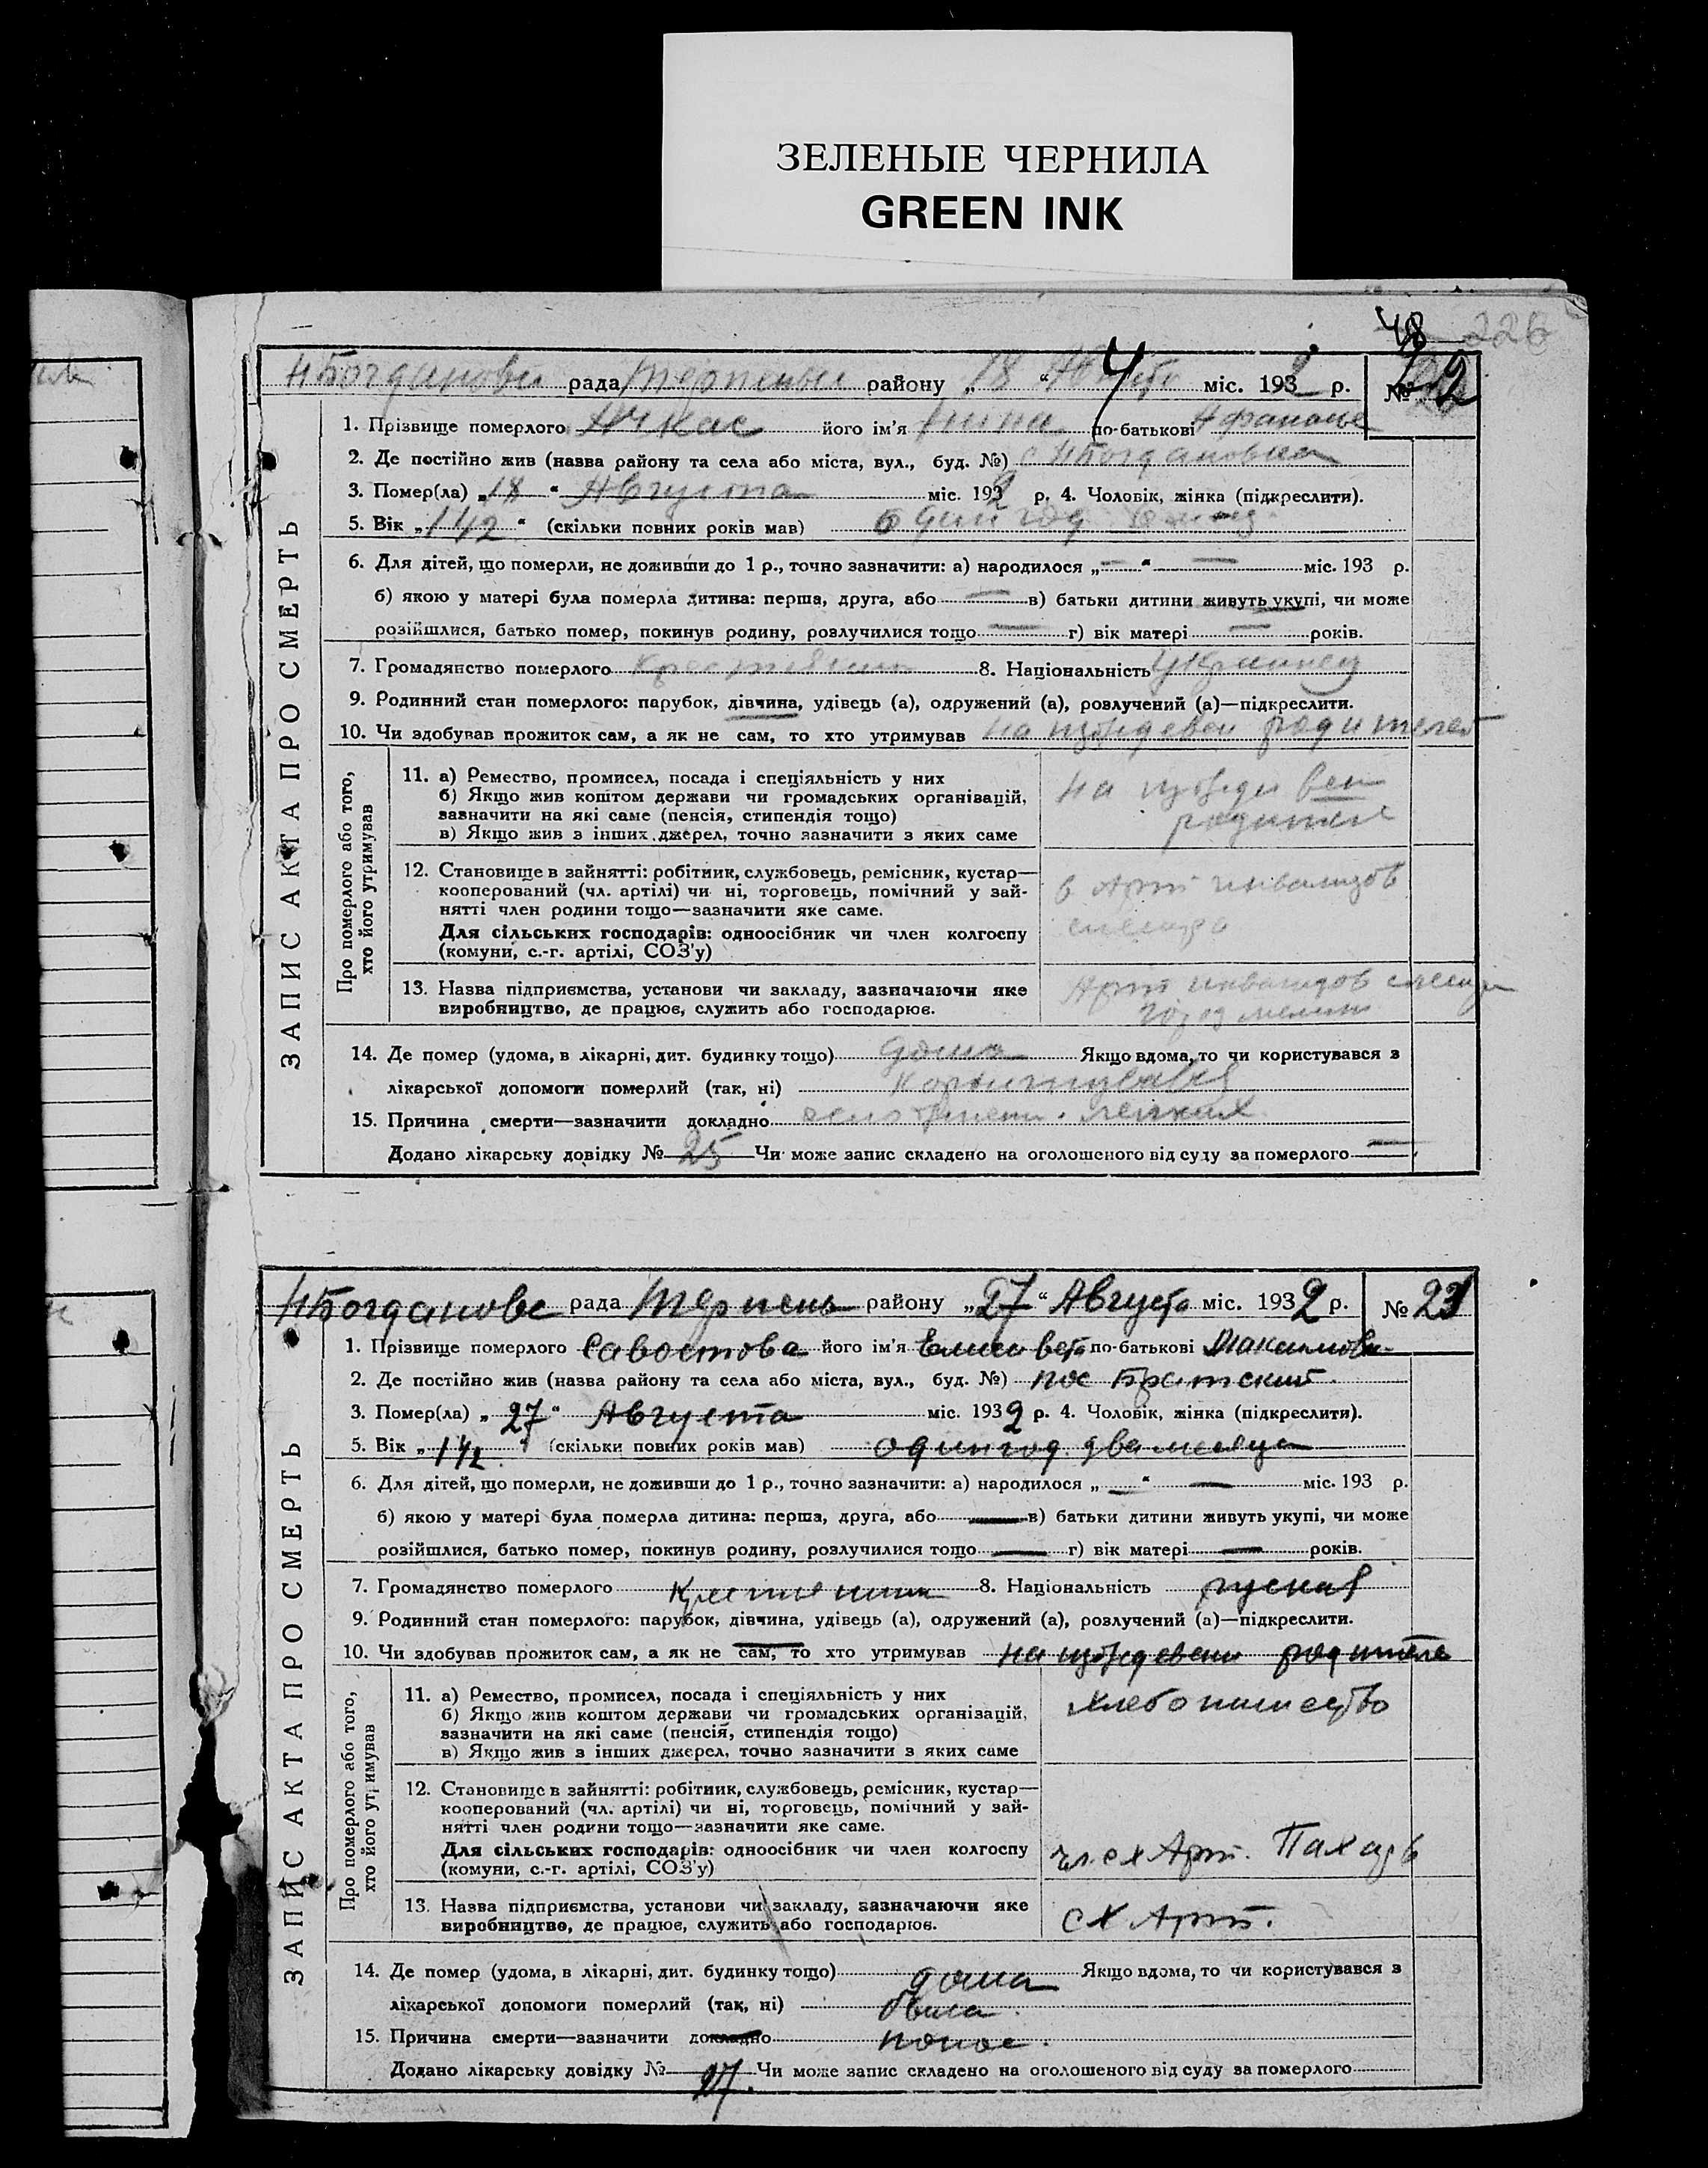 ЗЕЛЕНЫЕ ЧЕРНИЛА
GREEN INK
48 226
рада район у „18“ міс. 193 р. № 22
1. Прізвище померлого його ім'я Нина по-батькові
2. Де постійно жив (назва району та села або міста, вул., буд. №) с НБогдановка
3. Помер(ла) „18“ Августа міс. 1932 р. 4. Чоловік, жінка (підкреслити).
5. Вік „1 1/2“ (скільки повних років мав) один год
6. Для дітей, що померли, не доживши до 1 р., точно зазначити: а) народилося „—“ — міс. 193 р.
б) якою у матері була померла дитина: перша, друга, або — в) батьки дитини живуть укупі, чи може
розійшлися, батько помер, покинув родину, розлучилися тощо — г) вік матері — років.
7. Громадянство померлого 8. Національність Украинец
9. Родинний стан померлого: парубок, дівчина, удівець (а), одружений (а), розлучений (а)—підкреслити.
10. Чи здобував прожиток сам, а як не сам, то хто утримував на иждевен родителей
ЗАПИС АКТА ПРО СМЕРТЬ
Про померлого або того, хто його утримував
11. а) Ремество, промисел, посада і спеціяльність у них
б) Якщо жив коштом держави чи громадських організацій,
зазначити на які саме (пенсія, стипендія тощо)
в) Якщо жив з інших джерел, точно зазначити з яких саме
на иждевен
родителе
12. Становище в зайнятті: робітник, службовець, ремісник, кустар—
кооперований (чл. артілі) чи ні, торговець, помічний у зай-
нятті член родини тощо—зазначити яке саме.
Для сільських господарів: одноосібник чи член колгоспу
(комуни, с.-г. артілі, СОЗ'у)
в Арт инвалидов
13. Назва підприємства, установи чи закладу, зазначаючи яке
виробництво, де працює, служить або господарює.
Арт инвалидов
14. Де помер (удома, в лікарні, дит. будинку тощо) дома Якщо вдома, то чи користувався з
лікарської допомоги померлий (так, ні)
15. Причина смерти—зазначити докладно легких
Додано лікарську довідку № 25 Чи може запис складено на оголошеного від суду за померлого —
НБогдановс рада Терпень району „27“ Августа міс. 1932 р. № 23
1. Прізвище померлого Савостова його ім'я Елисовета по-батькові Максимовн
2. Де постійно жив (назва району та села або міста, вул., буд. №) пос Братский
3. Помер(ла) „27“ Августа міс. 1932 р. 4. Чоловік, жінка (підкреслити).
5. Вік „1 1/2“ (скільки повних років мав) один год два месяца
6. Для дітей, що померли, не доживши до 1 р., точно зазначити: а) народилося „—“ — міс. 193 р.
б) якою у матері була померла дитина: перша, друга, або — в) батьки дитини живуть укупі, чи може
розійшлися, батько помер, покинув родину, розлучилися тощо — г) вік матері — років.
7. Громадянство померлого 8. Національність руская
9. Родинний стан померлого: парубок, дівчина, удівець (а), одружений (а), розлучений (а)—підкреслити.
10. Чи здобував прожиток сам, а як не сам, то хто утримував на иждевени родителе
ЗАПИС АКТА ПРО СМЕРТЬ
Про померлого або того, хто його утримував
11. а) Ремество, промисел, посада і спеціяльність у них
б) Якщо жив коштом держави чи громадських організацій,
зазначити на які саме (пенсія, стипендія тощо)
в) Якщо жив з інших джерел, точно зазначити з яких саме
12. Становище в зайнятті: робітник, службовець, ремісник, кустар—
кооперований (чл. артілі) чи ні, торговець, помічний у зай-
нятті член родини тощо—зазначити яке саме.
Для сільських господарів: одноосібник чи член колгоспу
(комуни, с.-г. артілі, СОЗ'у)
чл. с х Арт. Пахарь
13. Назва підприємства, установи чи закладу, зазначаючи яке
виробництво, де працює, служить або господарює.
С Х Арт.
14. Де помер (удома, в лікарні, дит. будинку тощо) дома Якщо вдома, то чи користувався з
лікарської допомоги померлий (так, ні) была
15. Причина смерти—зазначити докладно понос.
Додано лікарську довідку № 27. Чи може запис складено на оголошеного від суду за померлого